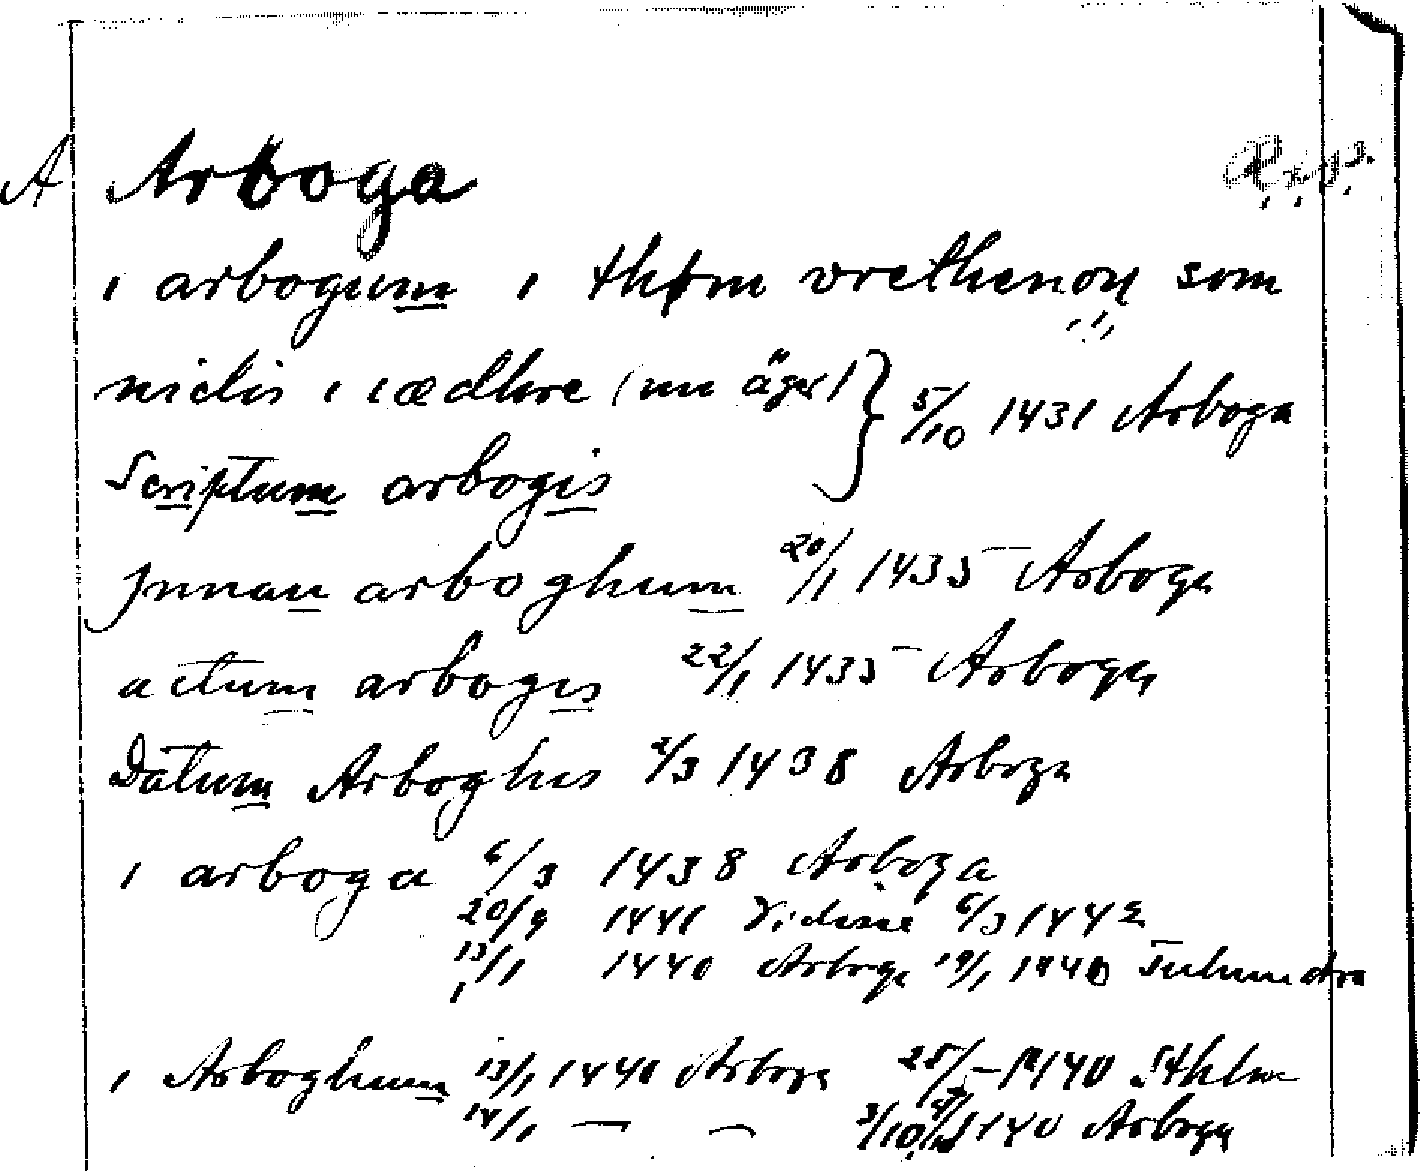 A Arboga
i arbogum i them vrethenom som
nidis i iædhre (nu äger) } 5/10 1431 Arboga
Scriptum arbogis
Jnnan arboghum 20/1 1435 Arboga
actum arbogis 22/1 1435 Arboga
Datum Arboghis 2/3 1438 Arboga
i arboga 6/3 1438 Arboga
20/9 1441 6/3 1442
13/1 1440 Arboga 19/1 1440
i Arboghum 13/1 1440 Arboga 25/- 1440 Sthlm
14/1 — — 3/10 1440 Arboga